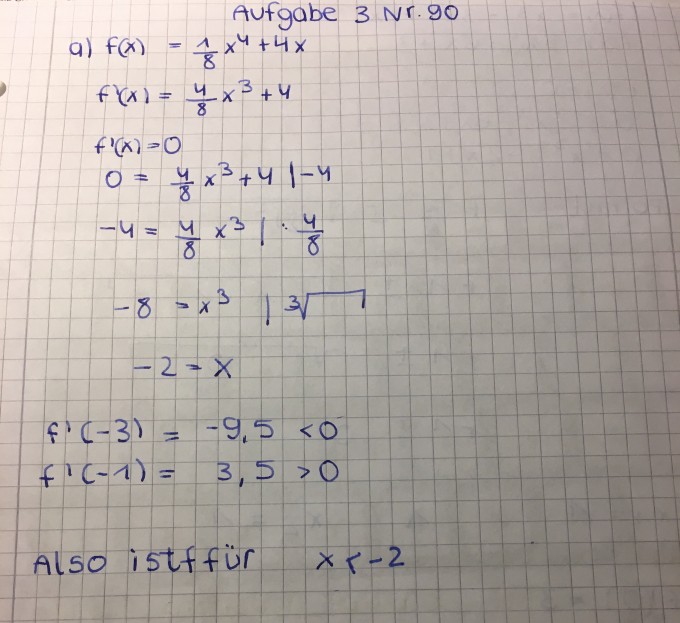 Aufgabe 3 Nr. 90
a) f(x) = 1/8 x⁴ + 4x
f'(x) = 4/8 x³ + 4
f'(x) = 0
0 = 4/8 x³ + 4 | -4
-4 = 4/8 x³ | · 4/8
-8 = x³ | ³√
-2 = x
f'(-3) = -9,5 < 0
f'(-1) = 3,5 > 0
Also ist f für x < -2